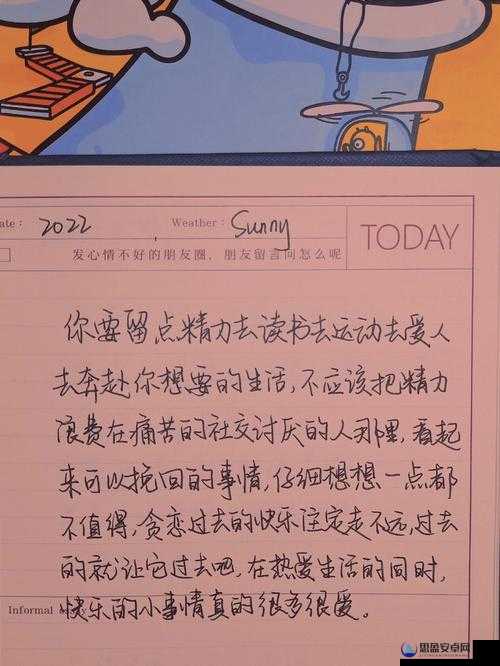 Date： 2022 Weather： Sunny TODAY
发心情不好的朋友圈，朋友留言问怎么呢
你要留点精力去读书去运动去爱人
去奔赴你想要的生活，不应该把精力
浪费在痛苦的社交讨厌的人那里，看起
来可以挽回的事情，仔细想想一点都
不值得，贪恋过去的快乐注定走不远，过去
的就让它过去吧，在热爱生活的同时，
Informal
快乐的小事情真的很多很爱。
思盈安卓网